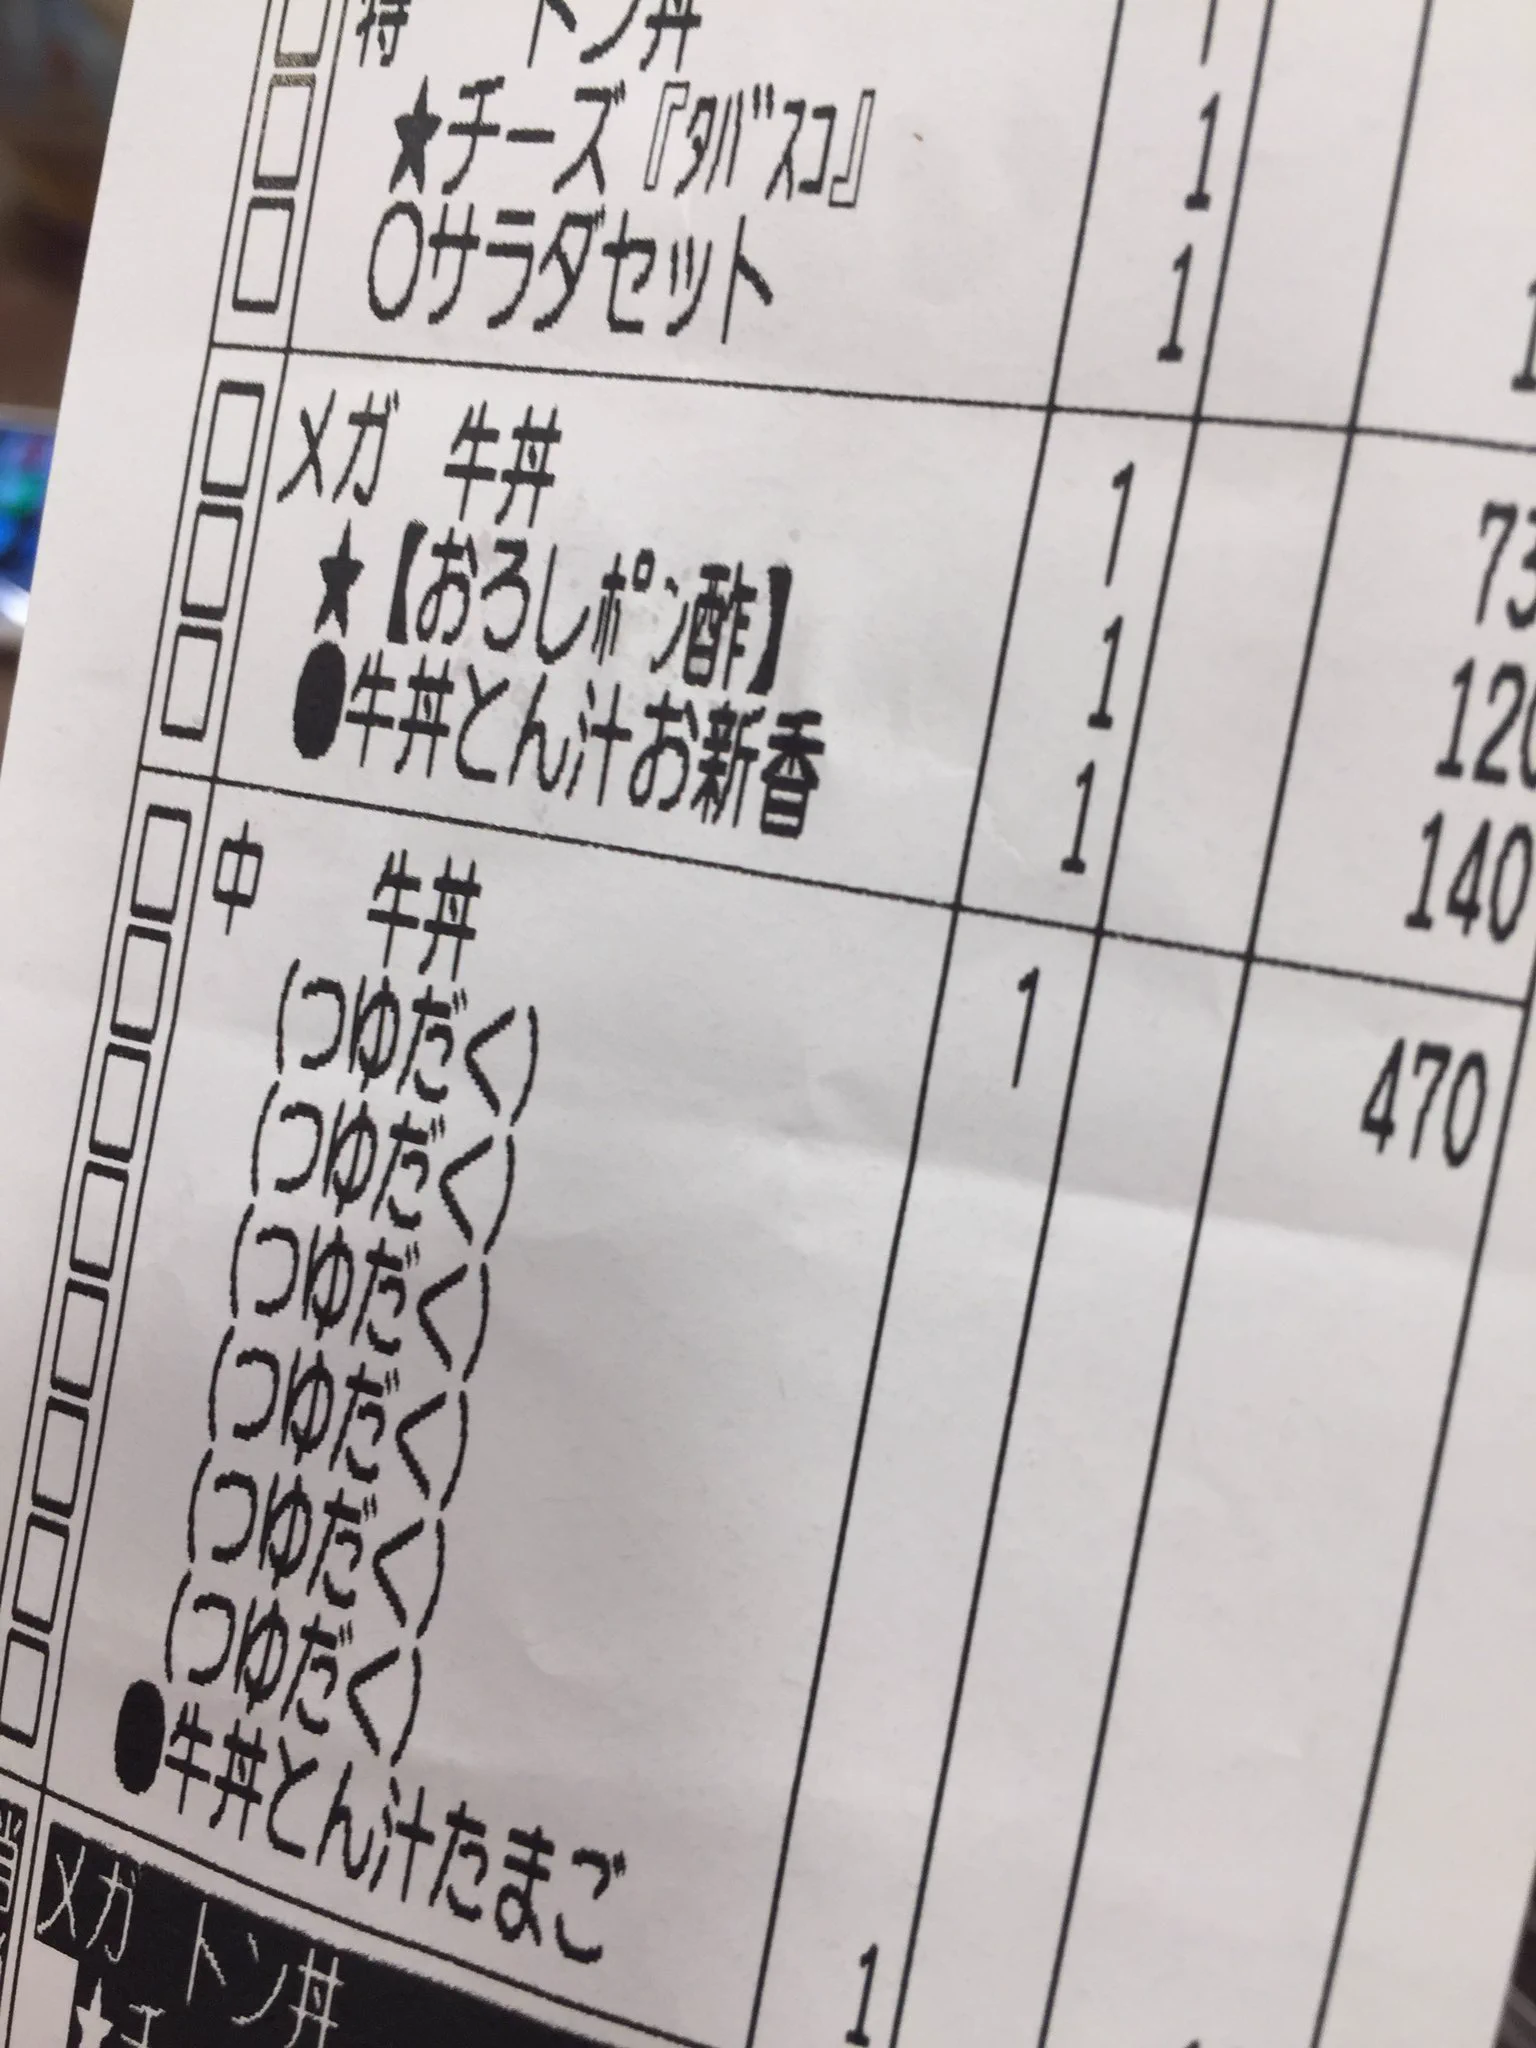 特 トン丼 1
★チーズ『ﾀﾊﾞｽｺ』 1
○サラダセット 1
メガ 牛丼 1
★【おろしﾎﾟﾝ酢】 1 120
●牛丼とん汁お新香 1 140
中 牛丼 1 470
(つゆだく)
(つゆだく)
(つゆだく)
(つゆだく)
(つゆだく)
(つゆだく)
●牛丼とん汁たまご 1
メガ トン丼
★チ